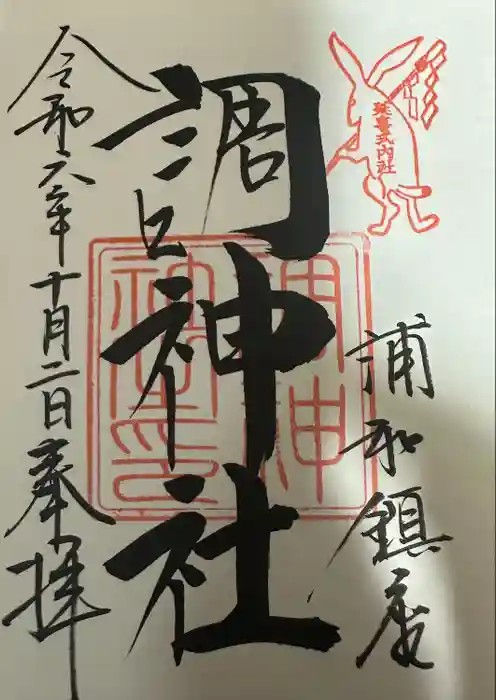 延喜式内社
浦和鎮座
調神社
調神社印
令和六年十月二日奉拝